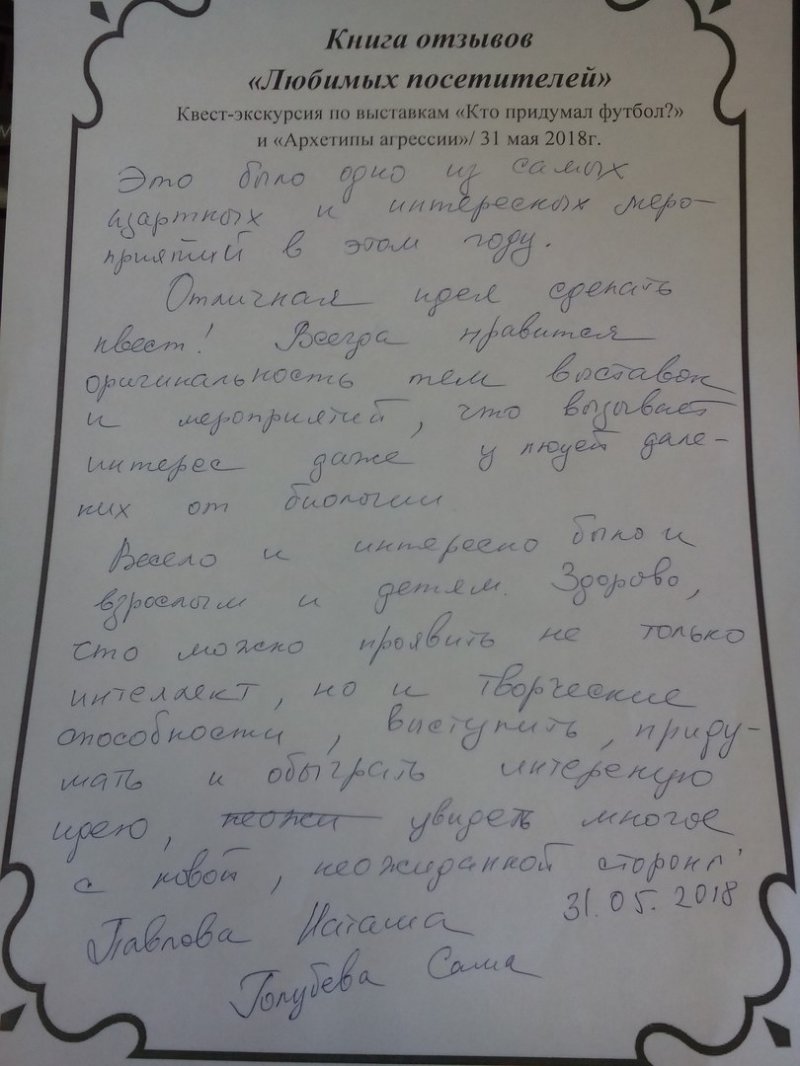 Книга отзывов
«Любимых посетителей»
Квест-экскурсия по выставкам «Кто придумал футбол?»
и «Архетипы агрессии»/ 31 мая 2018г.
Это было одно из самых
азартных и интересных меро-
приятий в этом году.
Отличная идея сделать
квест! Всегда нравится
оригинальность тем выставок
и мероприятий, что вызывает
интерес даже у людей дале-
ких от биологии
Весело и интересно было и
взрослым и детям. Здорово,
что можно проявить не только
интеллект, но и творческие
способности, выступить, приду-
мать и обыграть интереную
идею, неожи увидеть многое
с новой, неожиданной стороны
31.05.2018
Павлова Наташа
Голубева Саша